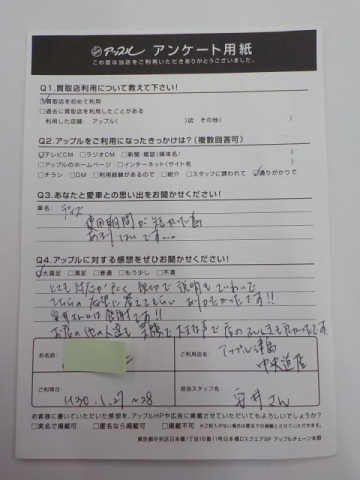 アップル アンケート用紙
この度は当店をご利用いただきありがとうございました。
Q1.買取店利用について教えて下さい!
☑買取店を初めて利用
□過去に買取店を利用したことがある
利用した店舗: アップル( )店 その他( )
Q2.アップルをご利用になったきっかけは?(複数回答可)
☑テレビCM □ラジオCM □新聞・雑誌(媒体名/ )
□アップルのホームページ □インターネット(サイト名 )
□チラシ □DM □利用経験があるので □紹介 □スタッフに誘われて ☑通りがかりで
Q3.あなたと愛車との思い出をお聞かせください!
車名: デイズ
使用期間が短かった為
あまりないです...
Q4.アップルに対する感想をぜひお聞かせください!
☑大満足 □満足 □普通 □もう少し □不満
とても対応が良く、親切で説明もていねいで
こちらの希望に答えてもらいありがたかったです!!
安井さんには感謝です!!
お店の他の人達も笑顔で大きな声で店のふんいきも良かったです
お名前:
ご利用店名: アップル津島
中央道店
ご利用日: H30.1.27~28
担当スタッフ名: 安井さん
お客様に書いていただいた感想を、アップルHPや広告に掲載させていただいてもよろしいでしょうか?
□実名で掲載可 □匿名なら掲載可 □掲載不可 ※ご記入がない場合は匿名での掲載とさせていただきます。
東京都中央区日本橋1丁目16番11号日本橋Dスクエア9F アップルチェーン本部